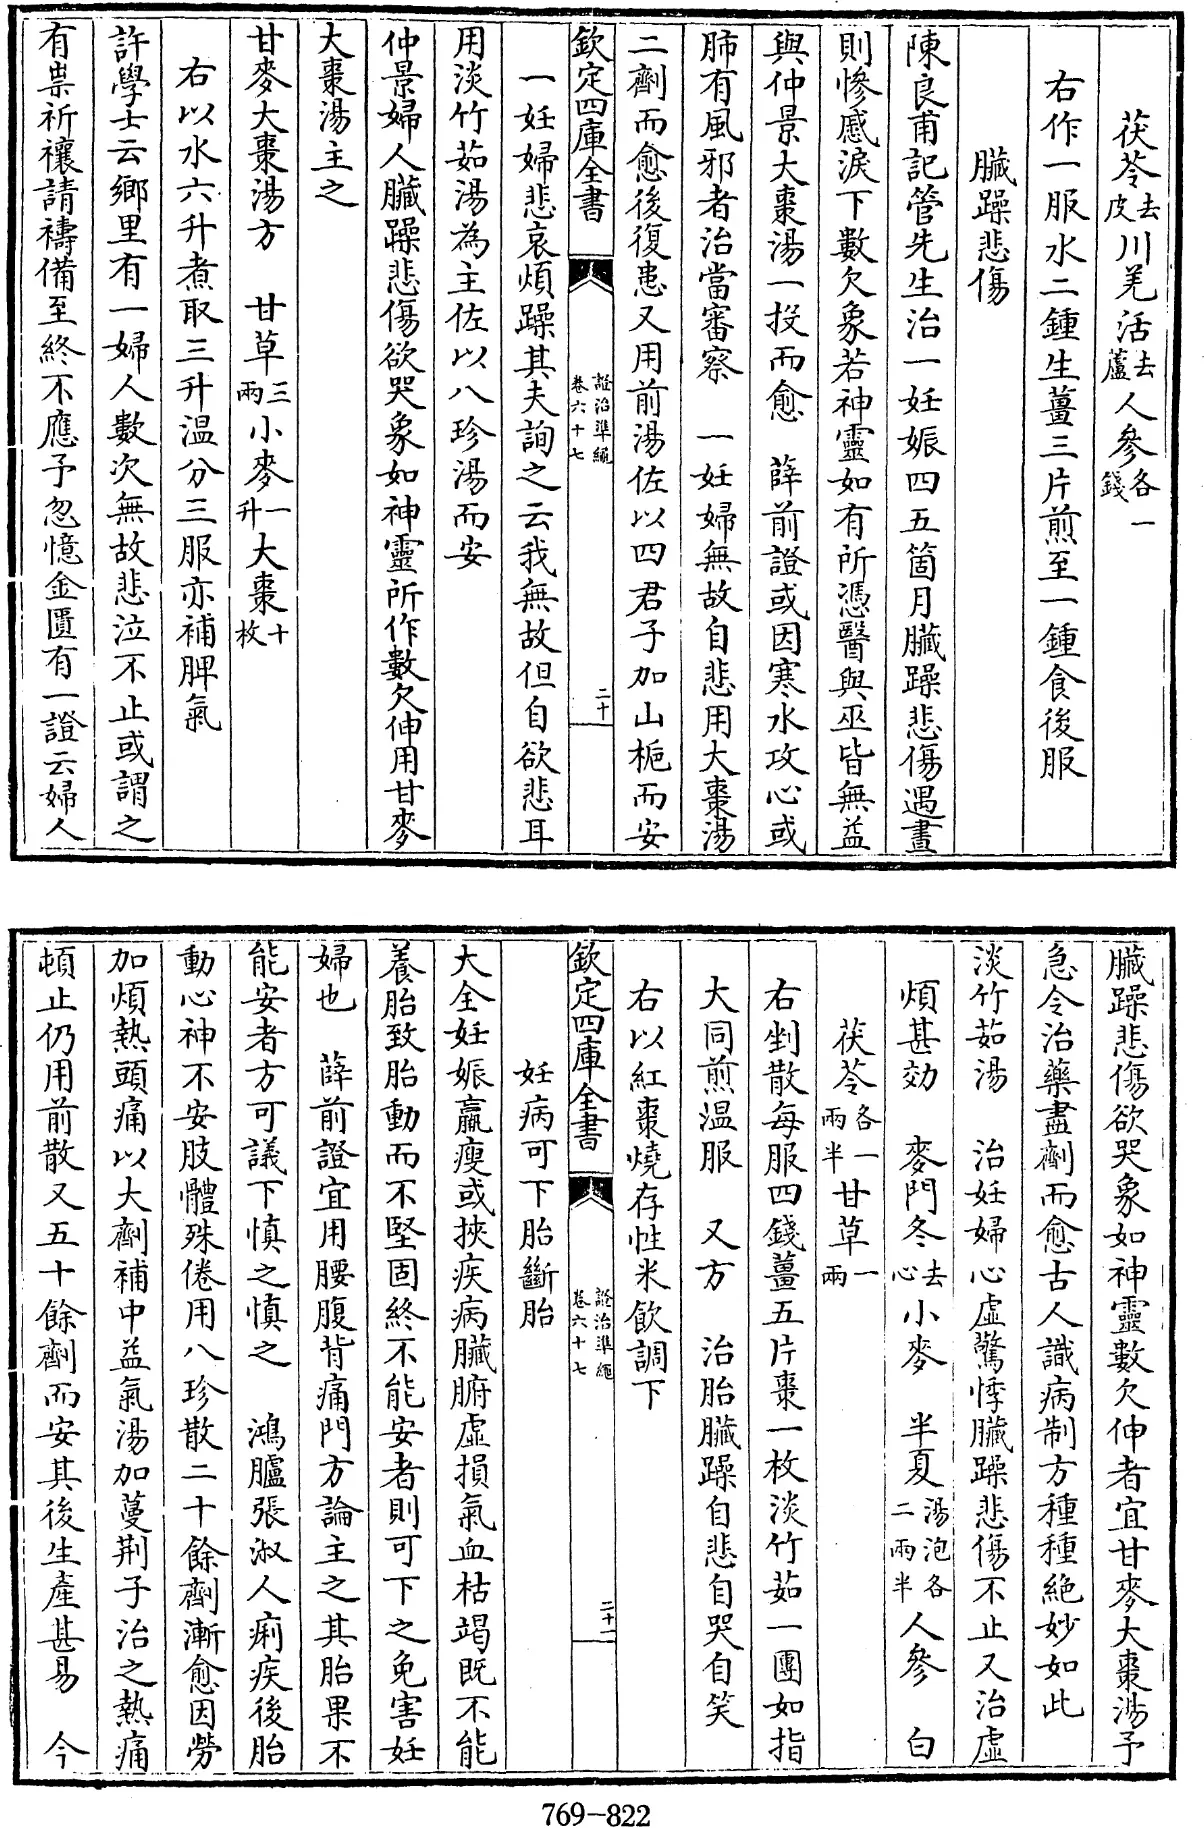 茯苓去皮川羌活去蘆人參各一錢
右作一服水二鍾生薑三片煎至一鍾食後服
臟躁悲傷
陳良甫記管先生治一妊娠四五箇月臟躁悲傷遇晝
則慘慼淚下數欠象若神靈如有所憑醫與巫皆無益
與仲景大棗湯一投而愈 薛前證或因寒水攻心或
肺有風邪者治當審察 一妊婦無故自悲用大棗湯
二劑而愈後復患又用前湯佐以四君子加山梔而安
欽定四庫全書
證治準繩
卷六十七
二十
一妊婦悲哀煩躁其夫詢之云我無故但自欲悲耳
用淡竹茹湯為主佐以八珍湯而安
仲景婦人臟躁悲傷欲哭象如神靈所作數欠伸用甘麥
大棗湯主之
甘麥大棗湯方 甘草三兩小麥一升大棗十枚
右以水六升煮取三升温分三服亦補脾氣
許學士云鄉里有一婦人數次無故悲泣不止或謂之
有祟祈禳請禱備至終不應予忽憶金匱有一證云婦人
臟躁悲傷欲哭象如神靈數欠伸者宜甘麥大棗湯予
急令治藥盡劑而愈古人識病制方種種絶妙如此
淡竹茹湯 治妊婦心虛驚悸臟躁悲傷不止又治虛
煩甚効 麥門冬去心小麥 半夏湯泡各二兩半人參 白
茯苓各一兩半甘草一兩
右剉散每服四錢薑五片棗一枚淡竹茹一團如指
大同煎温服 又方 治胎臟躁自悲自哭自笑
右以紅棗燒存性米飲調下
欽定四庫全書
證治準繩
卷六十七
二十一
妊病可下胎斷胎
大全妊娠羸瘦或挾疾病臟腑虛損氣血枯竭既不能
養胎致胎動而不堅固終不能安者則可下之免害妊
婦也 薛前證宜用腰腹背痛門方論主之其胎果不
能安者方可議下慎之慎之 鴻臚張淑人痢疾後胎
動心神不安肢體殊倦用八珍散二十餘劑漸愈因勞
加煩熱頭痛以大劑補中益氣湯加蔓荆子治之熱痛
頓止仍用前散又五十餘劑而安其後生產甚易 今
769-822